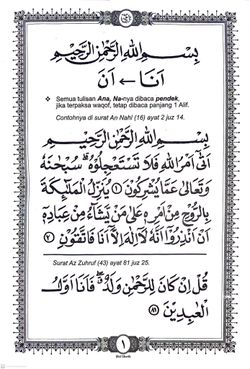 بِسْمِ اللهِ الرَّحْمٰنِ الرَّحِيْمِ
اَنَا ← اَنَ
❖ Semua tulisan Ana, Na-nya dibaca pendek,
jika terpaksa waqof, tetap dibaca panjang 1 Alif.
Contohnya di surat An Nahl (16) ayat 2 juz 14.
بِسْمِ اللهِ الرَّحْمٰنِ الرَّحِيْمِ
اَتٰىٓ اَمْرُ اللهِ فَلَا تَسْتَعْجِلُوْهُ ۗ سُبْحٰنَهٗ
وَتَعٰلٰى عَمَّا يُشْرِكُوْنَ ﴿١﴾ يُنَزِّلُ الْمَلٰٓئِكَةَ
بِالرُّوْحِ مِنْ اَمْرِهٖ عَلٰى مَنْ يَّشَآءُ مِنْ عِبَادِهٖٓ
اَنْ اَنْذِرُوْٓا اَنَّهٗ لَآ اِلٰهَ اِلَّآ اَنَا۠ فَاتَّقُوْنِ ﴿٢﴾
Surat Az Zuhruf (43) ayat 81 juz 25.
قُلْ اِنْ كَانَ لِلرَّحْمٰنِ وَلَدٌ ۖ فَاَنَا۠ اَوَّلُ
الْعٰبِدِيْنَ ﴿٨١﴾
١